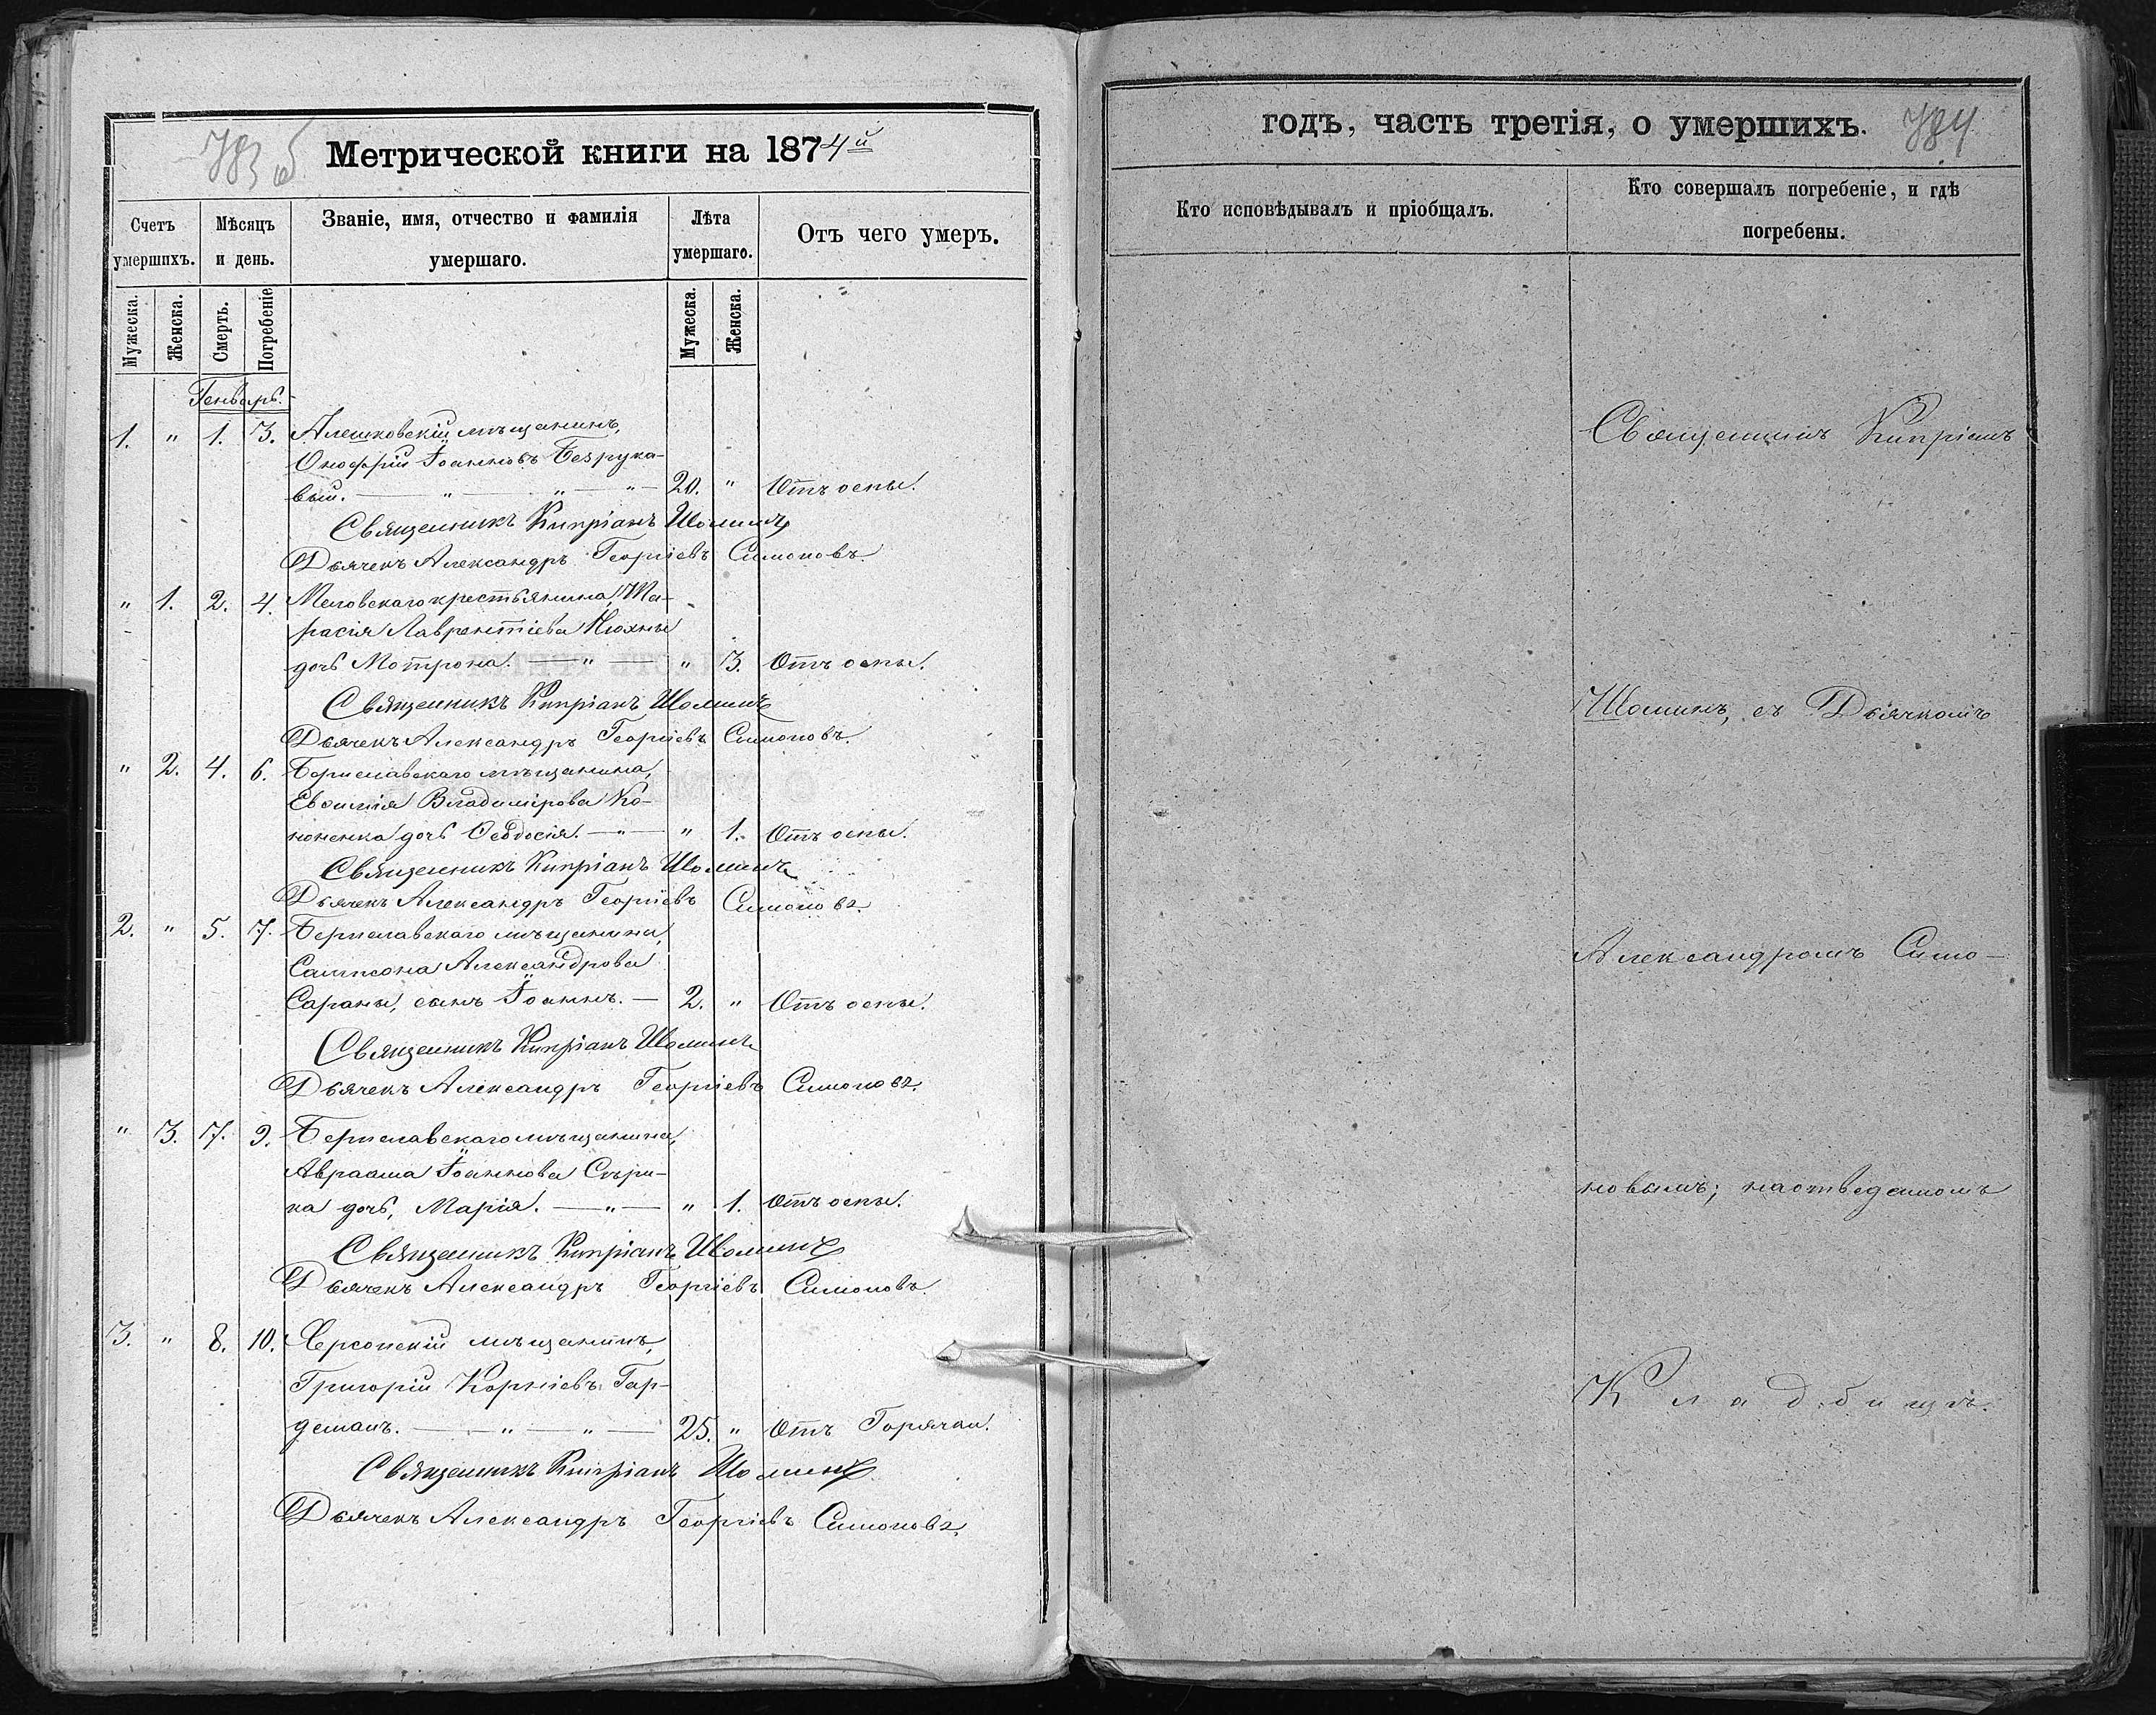 783 об
Метрической книги на 1874й
Счетъ умершихъ.
Мѣсяцъ и день.
Званіе, имя, отчество и фамилія умершаго.
Лѣта умершаго.
Отъ чего умеръ.
Мужеска.
Женска.
Смерть.
Погребеніе
Мужеска.
Женска.
Генварь.
1. " 1. 3. Алешковскій мѣщанинъ,
Онофрій Іоанновъ Безрука-
вый. — " — " — " — 20. " Отъ оспы.
Священникъ Кипріанъ Шоминъ
Дьячекъ Александръ Георгіевъ Симоновъ.
" 1. 2. 4. Меловскаго крестьянина, Та-
расія Лаврентіева Нюхны
дочь Мотрона. — " — " 3. Отъ оспы.
Священникъ Кипріанъ Шоминъ
Дьячекъ Александръ Георгіевъ Симоновъ.
" 2. 4. 6. Бериславскаго мѣщанина,
Евфимія Владимірова Ко-
ноненка дочь Феодосія. — " — " 1. Отъ оспы.
Священникъ Кипріанъ Шоминъ
Дьячекъ Александръ Георгіевъ Симоновъ.
2. " 5. 7. Бериславскаго мѣщанина,
Сампсона Александрова
Сараны, сынъ Іоаннъ. — 2. " Отъ оспы.
Священникъ Кипріанъ Шоминъ
Дьячекъ Александръ Георгіевъ Симоновъ.
" 3. 7. 9. Бериславскаго мѣщанина,
Авраама Іоаннова Сѣри-
ка дочь, Марія. — " — " 1. Отъ оспы.
Священникъ Кипріанъ Шоминъ
Дьячекъ Александръ Георгіевъ Симоновъ.
3. " 8. 10. Херсонскій мѣщанинъ,
Григорій Корніевъ Гар-
деманъ. — " — " — 25. " Отъ Горячки.
Священникъ Кипріанъ Шоминъ
Дьячекъ Александръ Георгіевъ Симоновъ.
годъ, часть третія, о умершихъ. 784
Кто исповѣдывалъ и пріобщалъ.
Кто совершалъ погребеніе, и гдѣ
погребены.
Священникъ Кипріанъ
Шоминъ, съ Дьячкомъ
Александромъ Симо-
новымъ; наотведенномъ
Кладбищѣ.